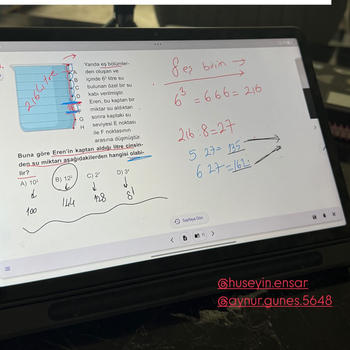 Yanda eş bölümler-
den oluşan ve
içinde 6³ litre su
bulunan özel bir su
kabı verilmiştir.
Eren, bu kaptan bir
miktar su aldıktan
sonra kaptaki su
seviyesi E noktası
ile F noktasının
arasına düşmüştür.
A
B
C
D
G
H
216 litre
Buna göre Eren'in kaptan aldığı litre cinsin-
den su miktarı aşağıdakilerden hangisi olabi-
lir?
A) 10² B) 12² C) 2⁷ D) 3⁴
100 144 128 81
8 eş birim →
6³ = 6.6.6 = 216
216:8=27
5.27=135
6.27=162
Sayfaya Dön
@huseyin.ensar
@aynur.gunes.5648